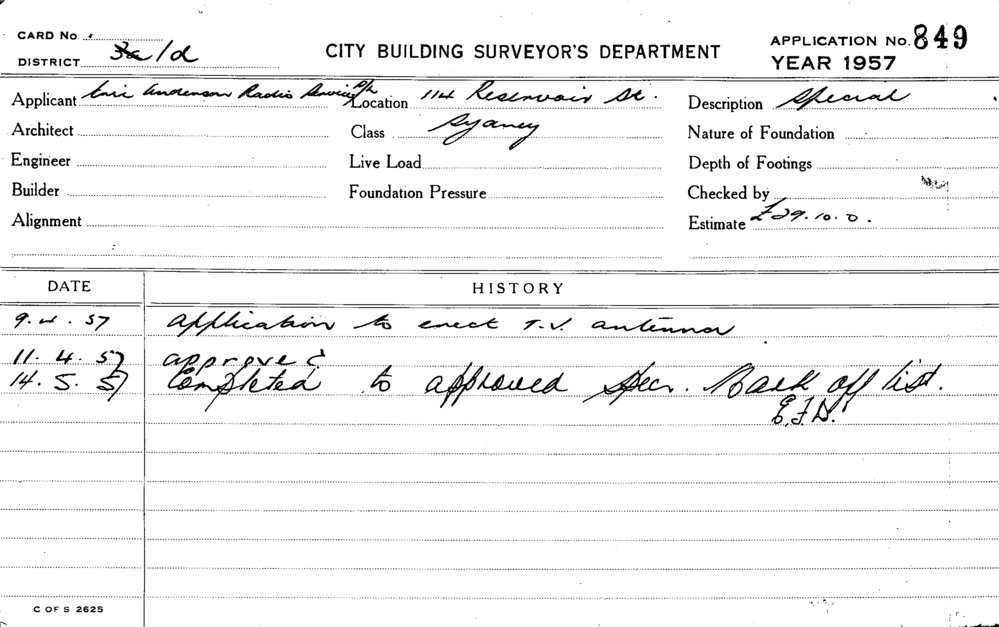 CARD No.
DISTRICT 3a/d
CITY BUILDING SURVEYOR'S DEPARTMENT
APPLICATION No. 849
YEAR 1957
Applicant Eric Anderson Radio Service P/L
Location 114 Reservoir St.
Description Special
Architect
Class Sydney
Nature of Foundation
Engineer
Live Load
Depth of Footings
Builder
Foundation Pressure
Checked by
Alignment
Estimate £29.10.0.
DATE HISTORY
9.4.57 Application to erect T.V. antenna
11.4.57 approved
14.5.57 Completed to approved Specr. Mark off list.
E.F.D.
C OF S 2625